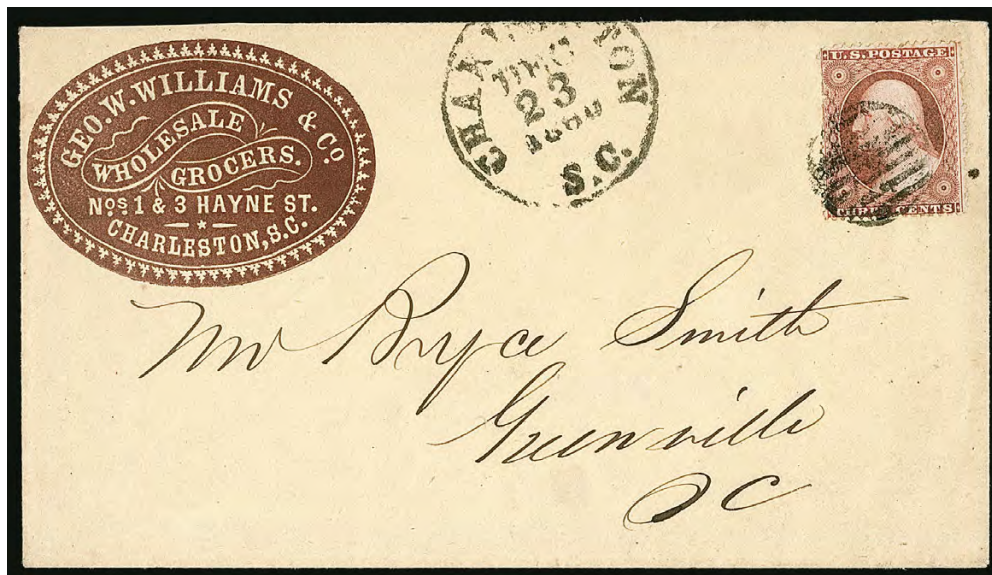 GEO. W. WILLIAMS & CO.
WHOLESALE
GROCERS.
NOS. 1 & 3 HAYNE ST.
CHARLESTON, S.C.
CHARLESTON
DEC
23
1860
S.C.
U.S. POSTAGE
THREE CENTS
Mr Bryce Smith
Greenville
SC